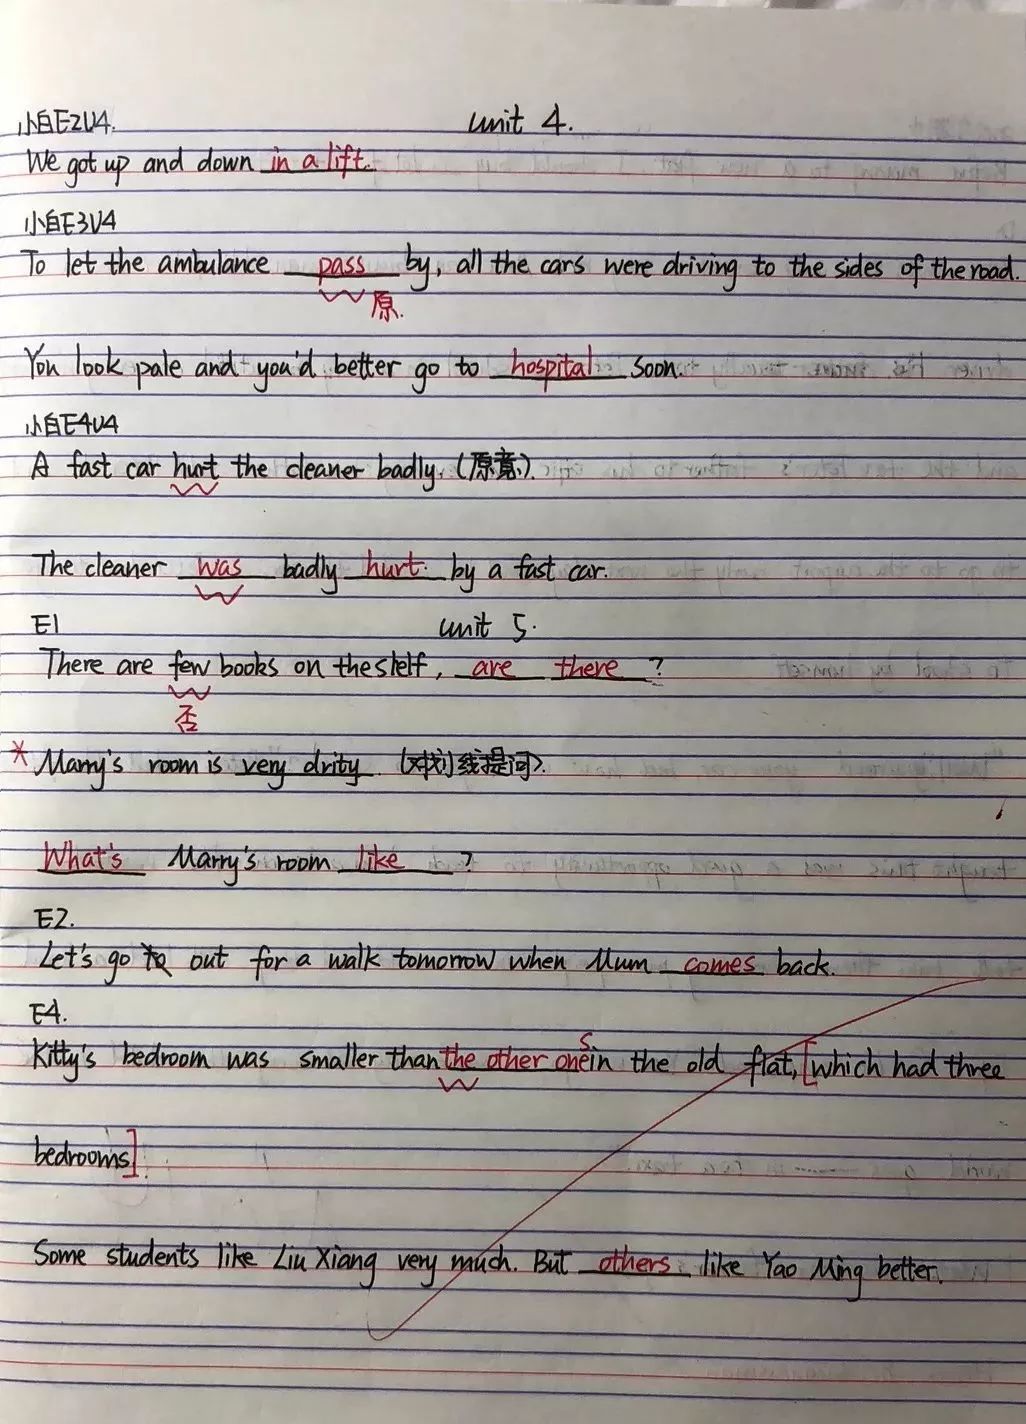 小白E2U4. unit 4.
We got up and down in a lift.
小白E3U4
To let the ambulance pass by, all the cars were driving to the sides of the road.
原.
You look pale and you'd better go to hospital soon.
小白E4U4
A fast car hurt the cleaner badly. (原意).
The cleaner was badly hurt. by a fast car.
E1 unit 5.
There are few books on the shelf, are there ?
否
* Marry's room is very drity. (对划线提问).
What's Marry's room like ?
E2.
Let's go out for a walk tomorrow when Mum comes back.
E4.
Kitty's bedroom was smaller than the other ones in the old flat, [which had three
bedrooms].
Some students like Liu Xiang very much. But others like Yao Ming better.